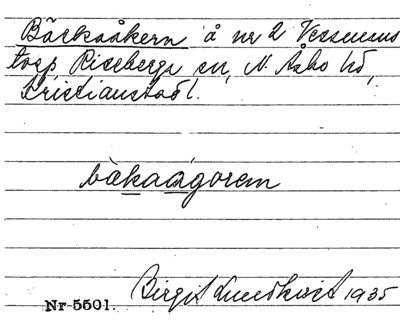 Bäckaåkern å nr 2 Vessmans
torp Riseberga sn, N. Åsbo hd,
Kristianstad l.
bàkaågorem
Birgit Lundkvist 1935
Nr 5501.